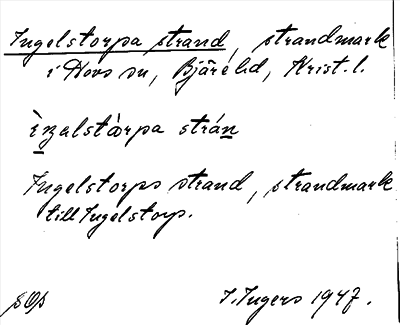 Ingelstorpa strand, strandmark
i Hovs sn, Bjäre hd, Krist. l.
ìŋalstàrpa strán
Ingelstorps strand, strandmark
till Ingelstorp.
I. Ingers 1947.